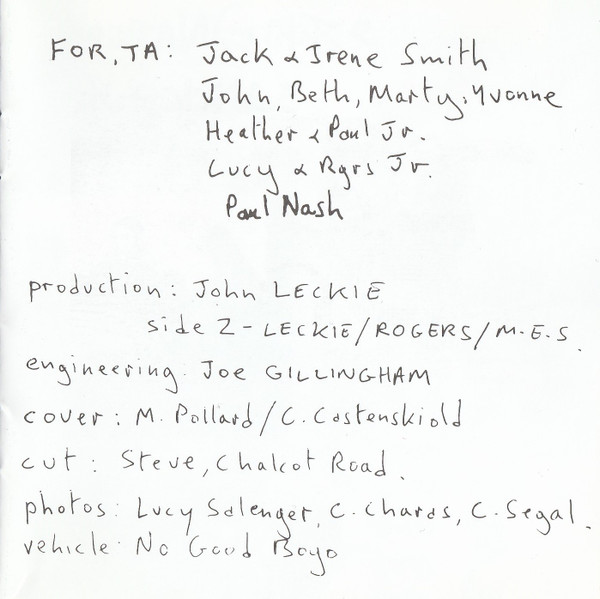 FOR, TA: Jack & Irene Smith
John, Beth, Marty, Yvonne
Heather & Paul Jr.
Lucy & Rgrs Jr.
Paul Nash
production: John LECKIE
side 2 - LECKIE/ROGERS/M.E.S.
engineering: Joe GILLINGHAM
cover: M. Pollard/C. Costenskiold
cut: Steve, Chalcot Road.
photos: Lucy Salenger, C. Chards, C. Segal.
vehicle: No Good Boyo